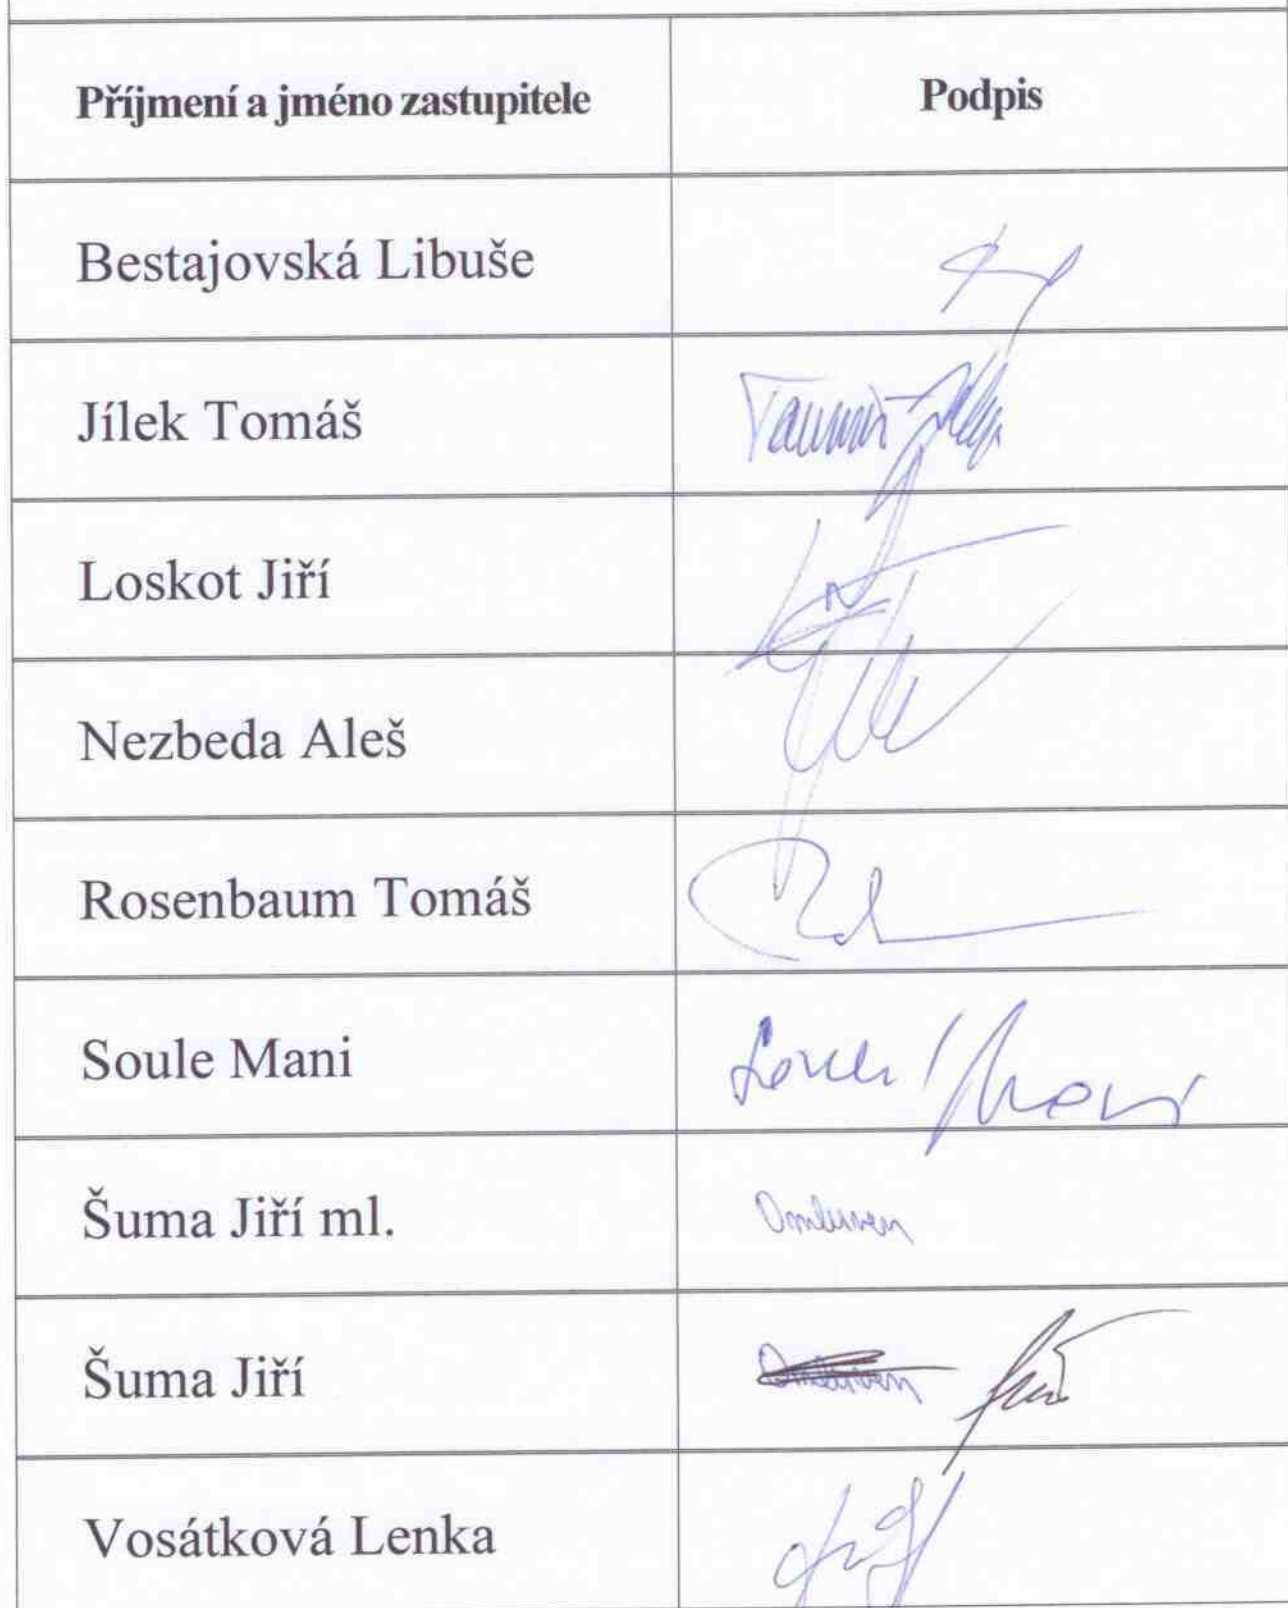 Příjmení a jméno zastupitele Podpis
Bestajovská Libuše
Jílek Tomáš
Loskot Jiří
Nezbeda Aleš
Rosenbaum Tomáš
Soule Mani
Šuma Jiří ml. Omluven
Šuma Jiří Omluven
Vosátková Lenka